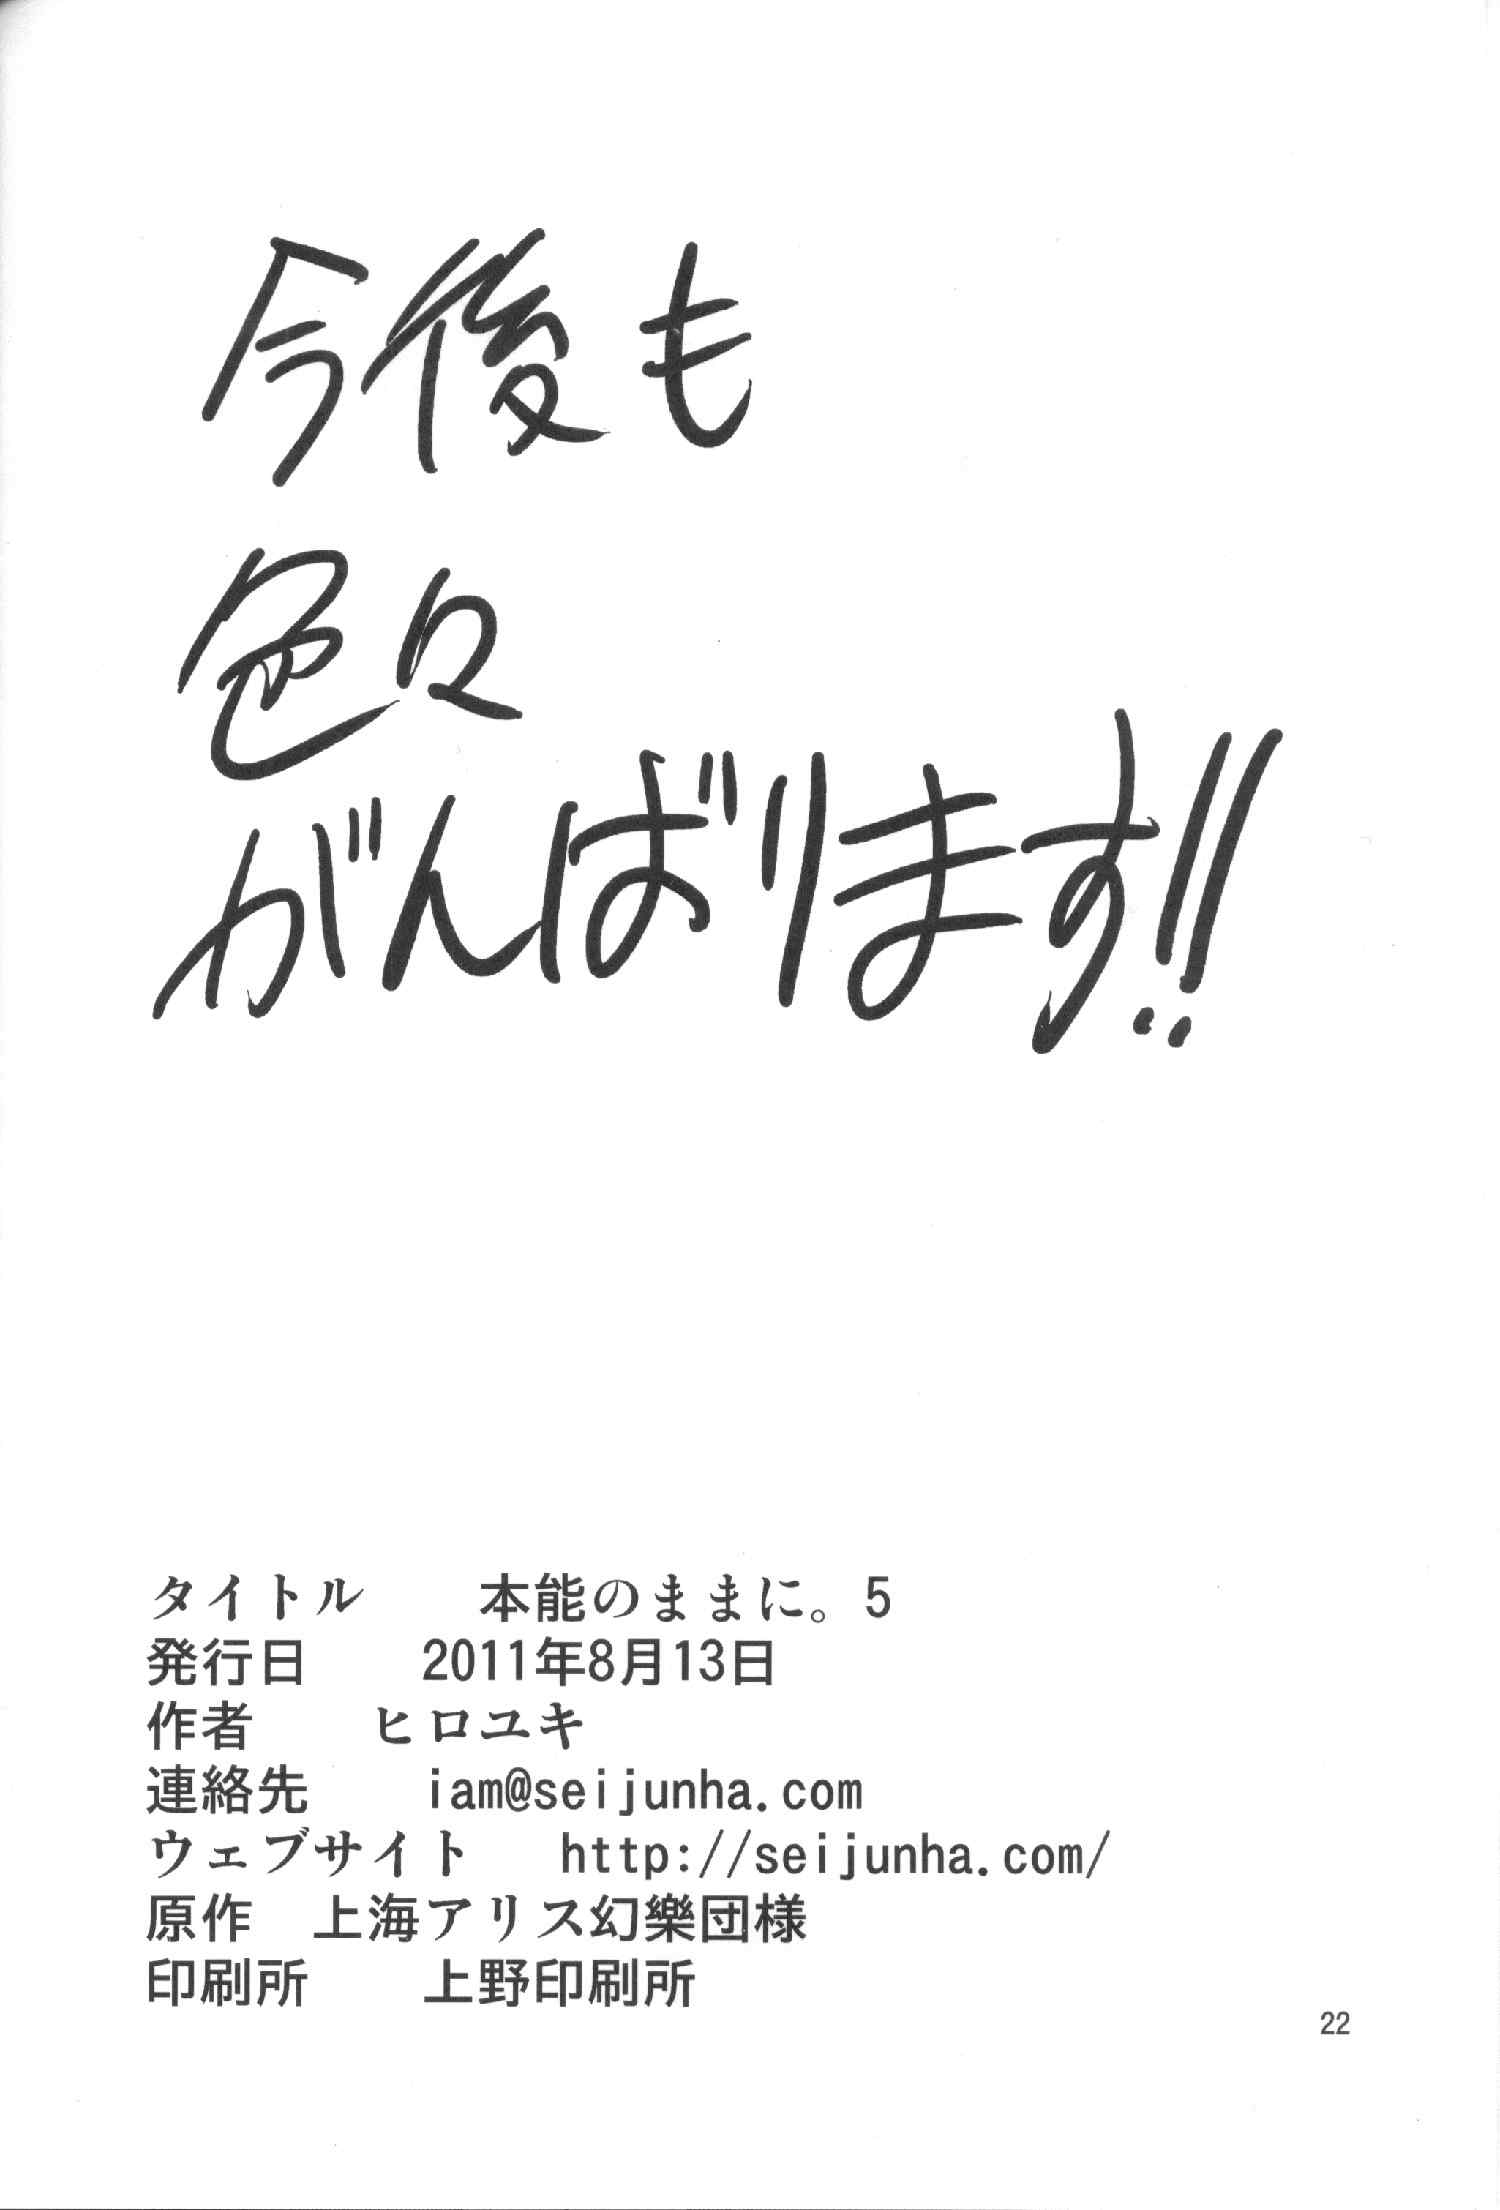 今後も
色々
がんばります!!
タイトル 本能のままに。5
発行日 2011年8月13日
作者 ヒロユキ
連絡先 iam@seijunha.com
ウェブサイト http://seijunha.com/
原作 上海アリス幻樂団様
印刷所 上野印刷所
22